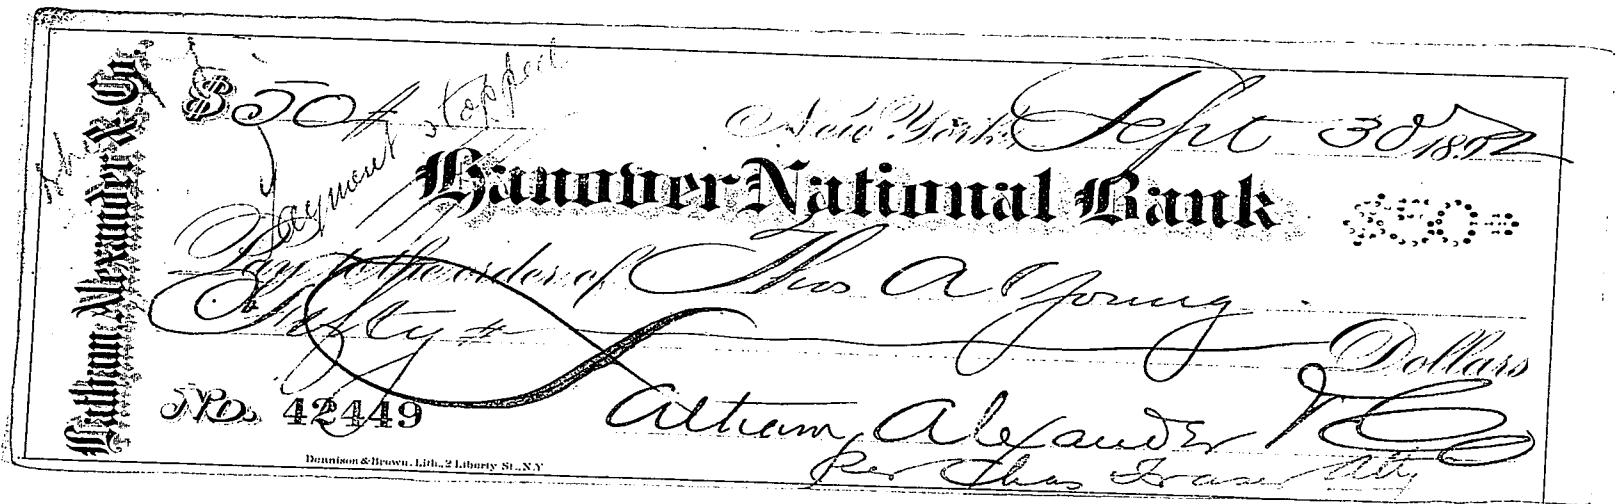 Latham Alexander & Co.
$50#
Payment stopped
New York, Sept 30 1892
Hanover National Bank
$50#
Pay to the order of Thos A Young
Fifty # Dollars
No. 42449
Latham, Alexander & Co
per Chas Fraser Atty
Dennison & Brown. Lith., 2 Liberty St., N.Y